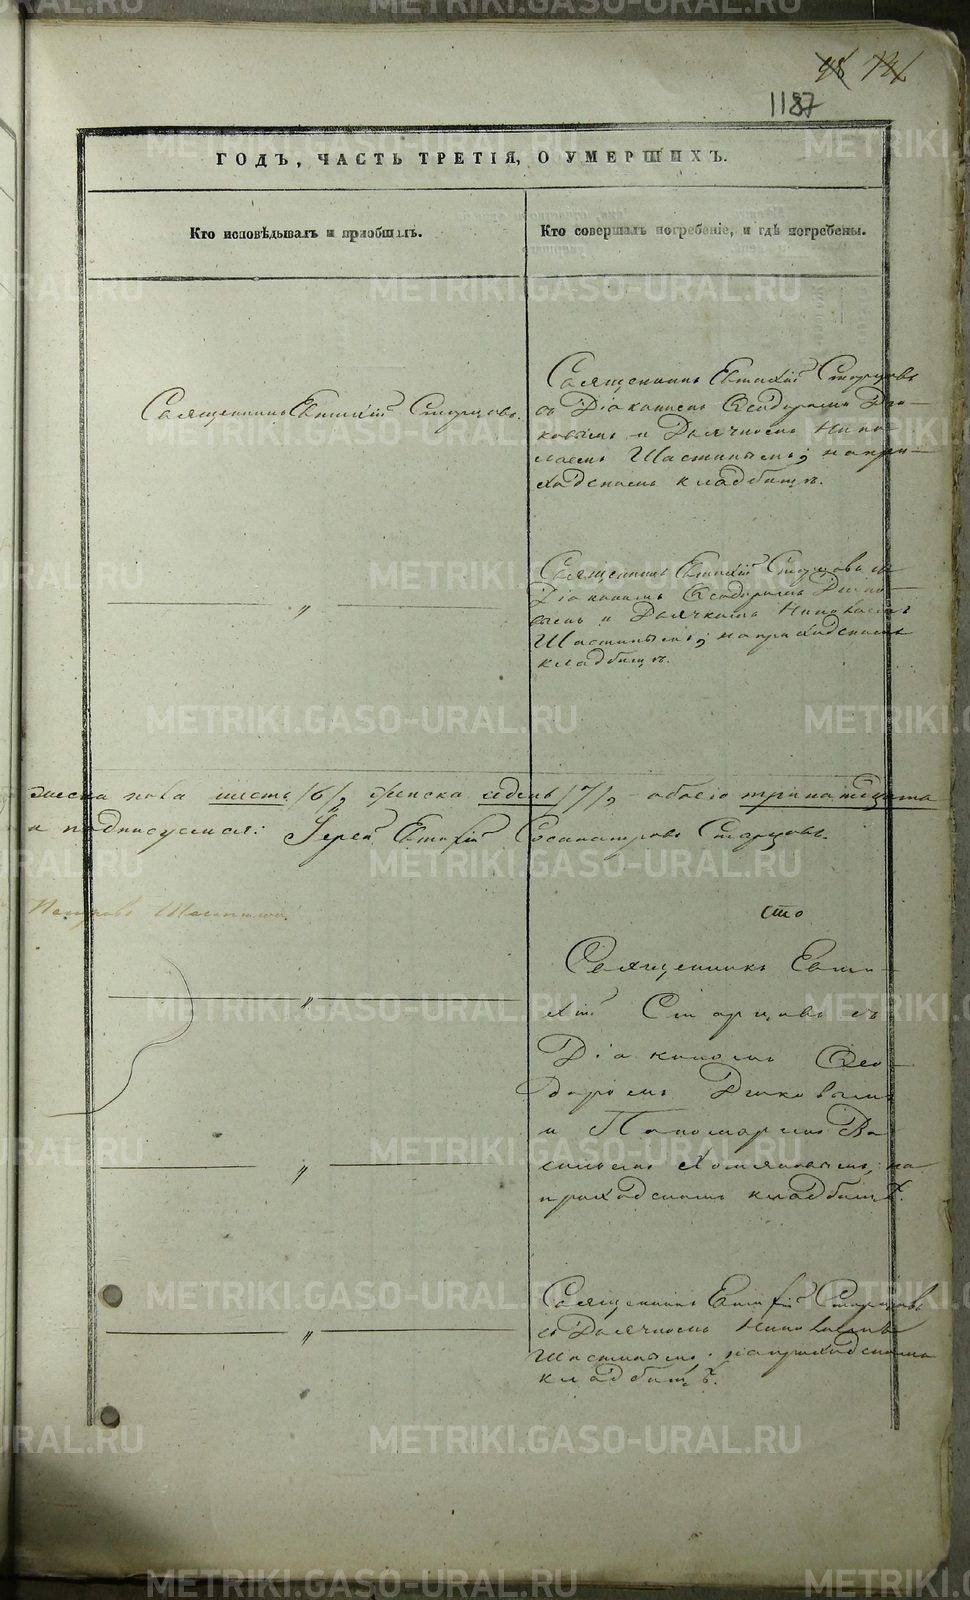 98 72
1187
ГОДЪ, ЧАСТЬ ТРЕТІЯ, О УМЕРШИХЪ.
Кто исповѣдывалъ и пріобщалъ.
Кто совершалъ погребеніе, и гдѣ погребены.
Священникъ Евтихій Старцовъ.
Священникъ Евтихій Старцовъ
съ Діакономъ Ѳеодоромъ Ды-
ковымъ и Дьячкомъ Нико-
лаемъ Шастинымъ, на при-
ходскомъ кладбищѣ.
— „ —
Священникъ Евтихій Старцовъ съ
Діакономъ Ѳеодоромъ
и Дьячкомъ Николаемъ
Шастинымъ, на приходскомъ
кладбищѣ.
мужеска пола шесть /6/, женска седмь /7/, обоего тринатцать
и подписуемся: Іерей Евтихій Старцовъ.
Петровъ Шастинъ.
сто
Священникъ Евти-
хій Старцовъ съ
Діакономъ Ѳео-
доромъ
и Пономаремъ Ва
сильемъ Хомяковымъ, на
приходскомъ кладбищѣ.
— „ —
— „ —
Священникъ Евтихій Старцовъ
съ Дьячкомъ Николаемъ
Шастинымъ, на приходскомъ
кладбищѣ.
— „ —
METRIKI.GASO-URAL.RU